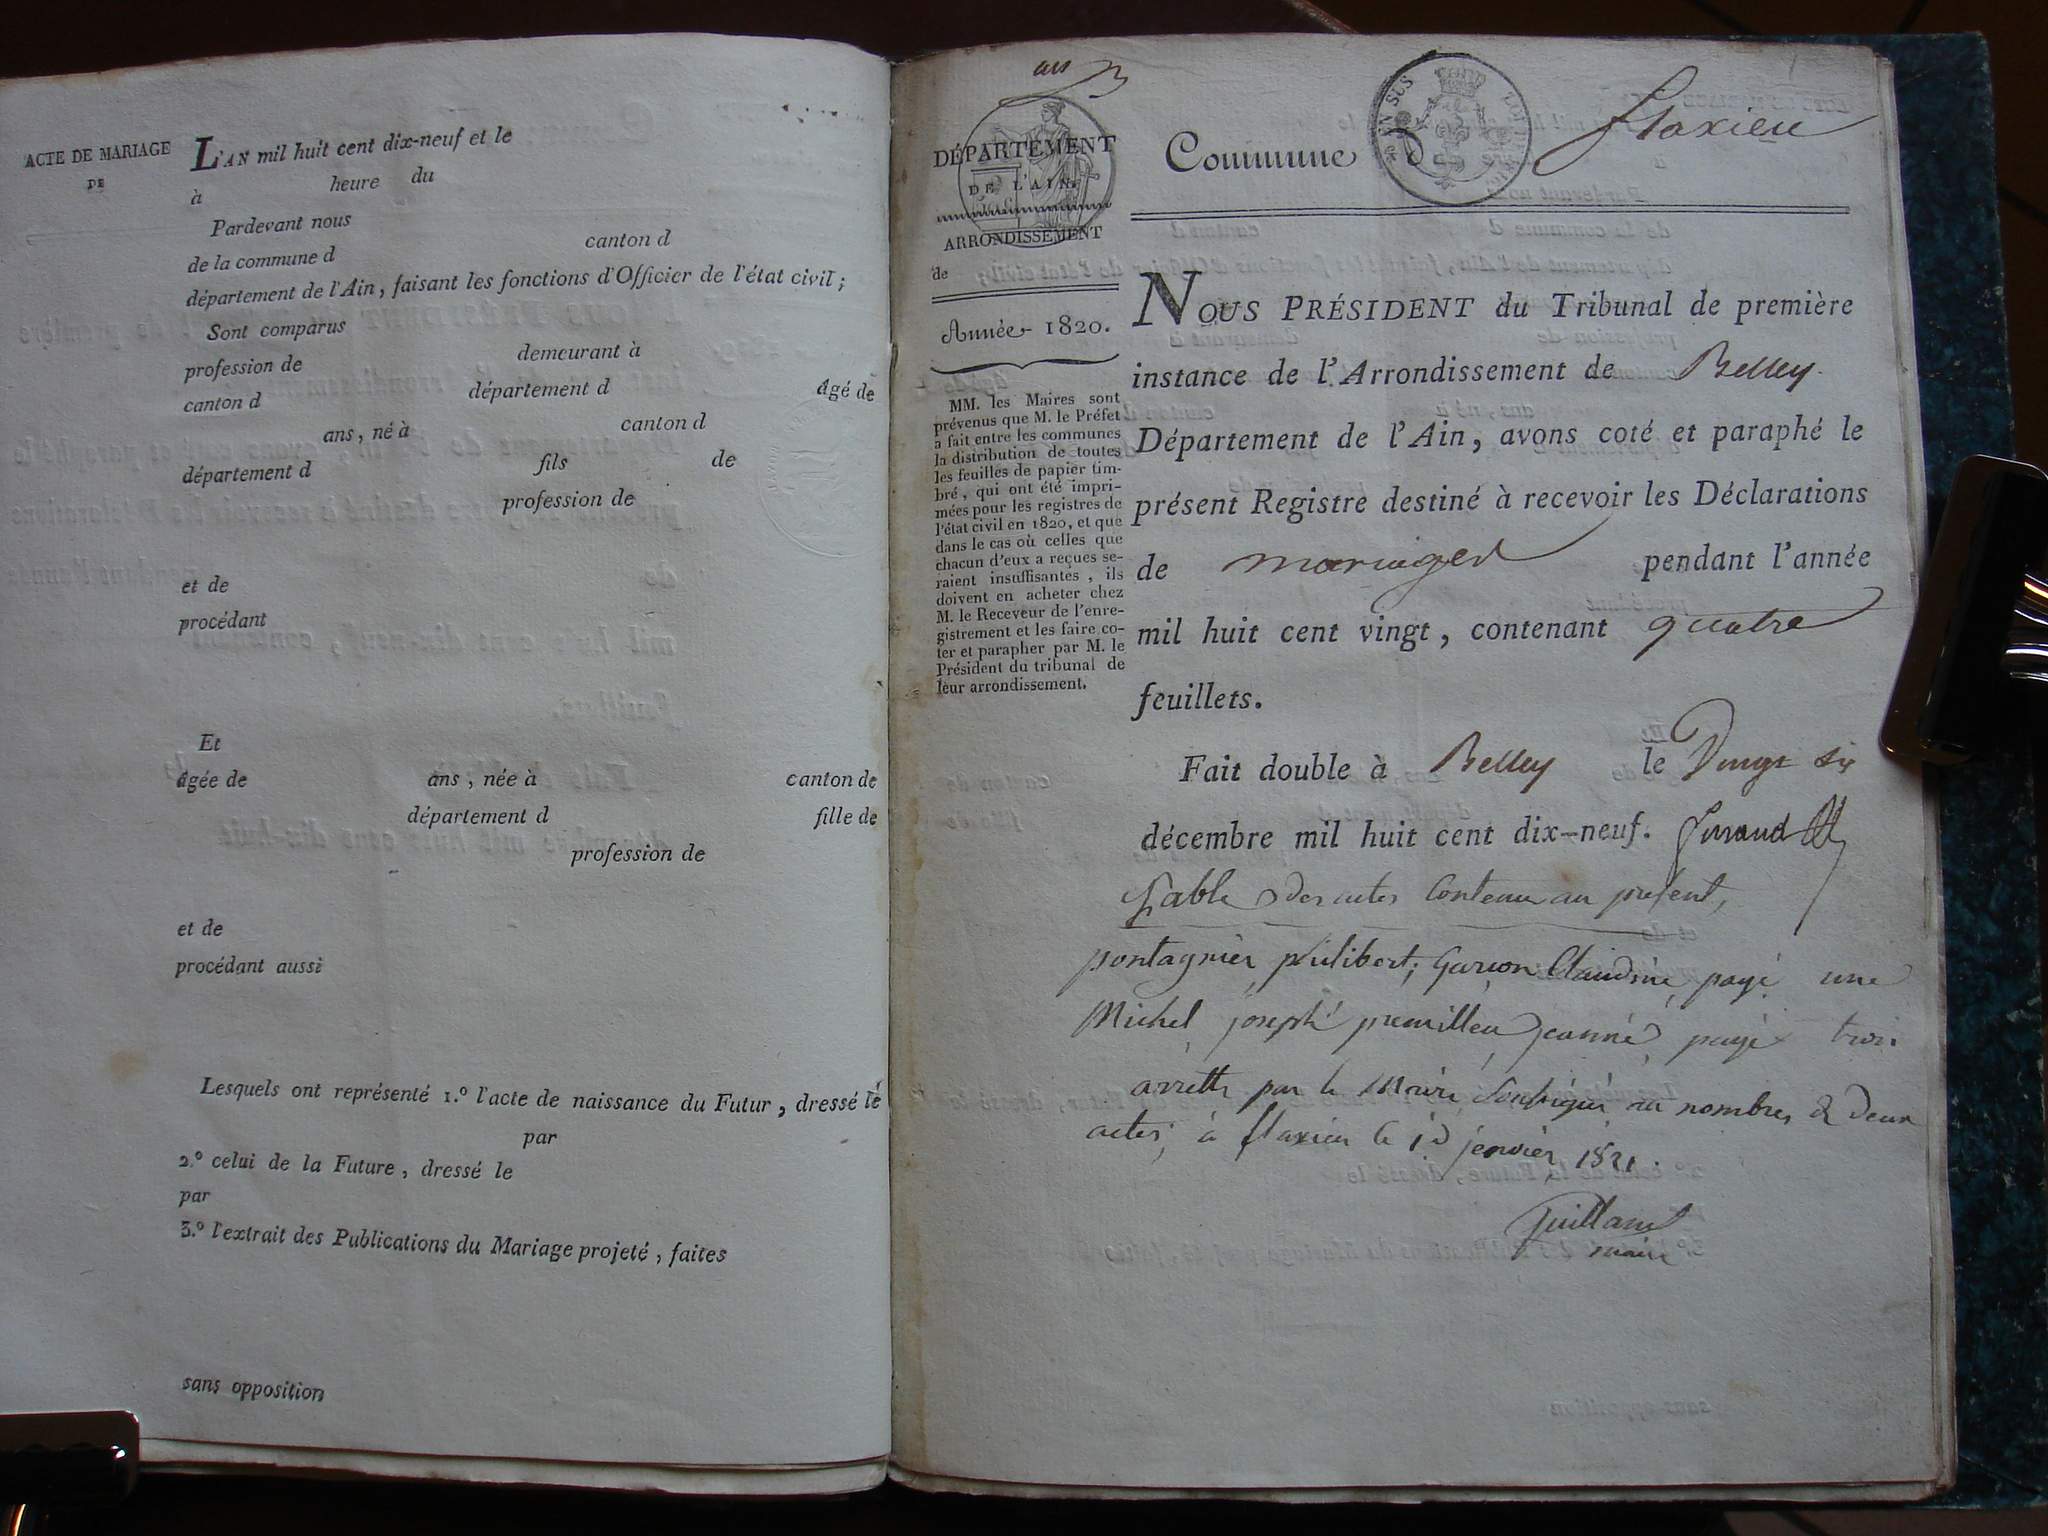 ACTE DE MARIAGE
DE
L'AN mil huit cent dix-neuf et le
à heure du
Pardevant nous
de la commune d canton d
département de l'Ain, faisant les fonctions d'Officier de l'état civil;
Sont comparus
profession de demeurant à
canton d département d âgé de
ans, né à canton d
département d fils de
profession de
et de
procédant
Et
âgée de ans, née à canton de
département d fille de
profession de
et de
procédant aussi
Lesquels ont représenté 1.º l'acte de naissance du Futur, dressé le
par
2.º celui de la Future, dressé le
par
3.º l'extrait des Publications du Mariage projeté, faites
sans opposition
DÉPARTEMENT
DE L'AIN.
ARRONDISSEMENT
de
Année 1820.
MM. les Maires sont
prévenus que M. le Préfet
a fait entre les communes
la distribution de toutes
les feuilles de papier tim-
bré, qui ont été impri-
mées pour les registres de
l'état civil en 1820, et que
dans le cas où celles que
chacun d'eux a reçues se-
raient insuffisantes, ils
doivent en acheter chez
M. le Receveur de l'enre-
gistrement et les faire co-
ter et parapher par M. le
Président du tribunal de
leur arrondissement.
Commune d flaxieu
NOUS PRÉSIDENT du Tribunal de première
instance de l'Arrondissement de Belley
Département de l'Ain, avons coté et paraphé le
présent Registre destiné à recevoir les Déclarations
de mariages pendant l'année
mil huit cent vingt, contenant quatre
feuillets.
Fait double à Belley le Vingt six
décembre mil huit cent dix-neuf.
Table des actes Contenu au présent,
pontagnier philibert; Garçon Claudine, page une
Michel joseph premilleu jeanne, page trois
arretté par le Maire Soussigné au nombres de deux
actes, à flaxieu le 1er janvier 1821.
Guilland
maire